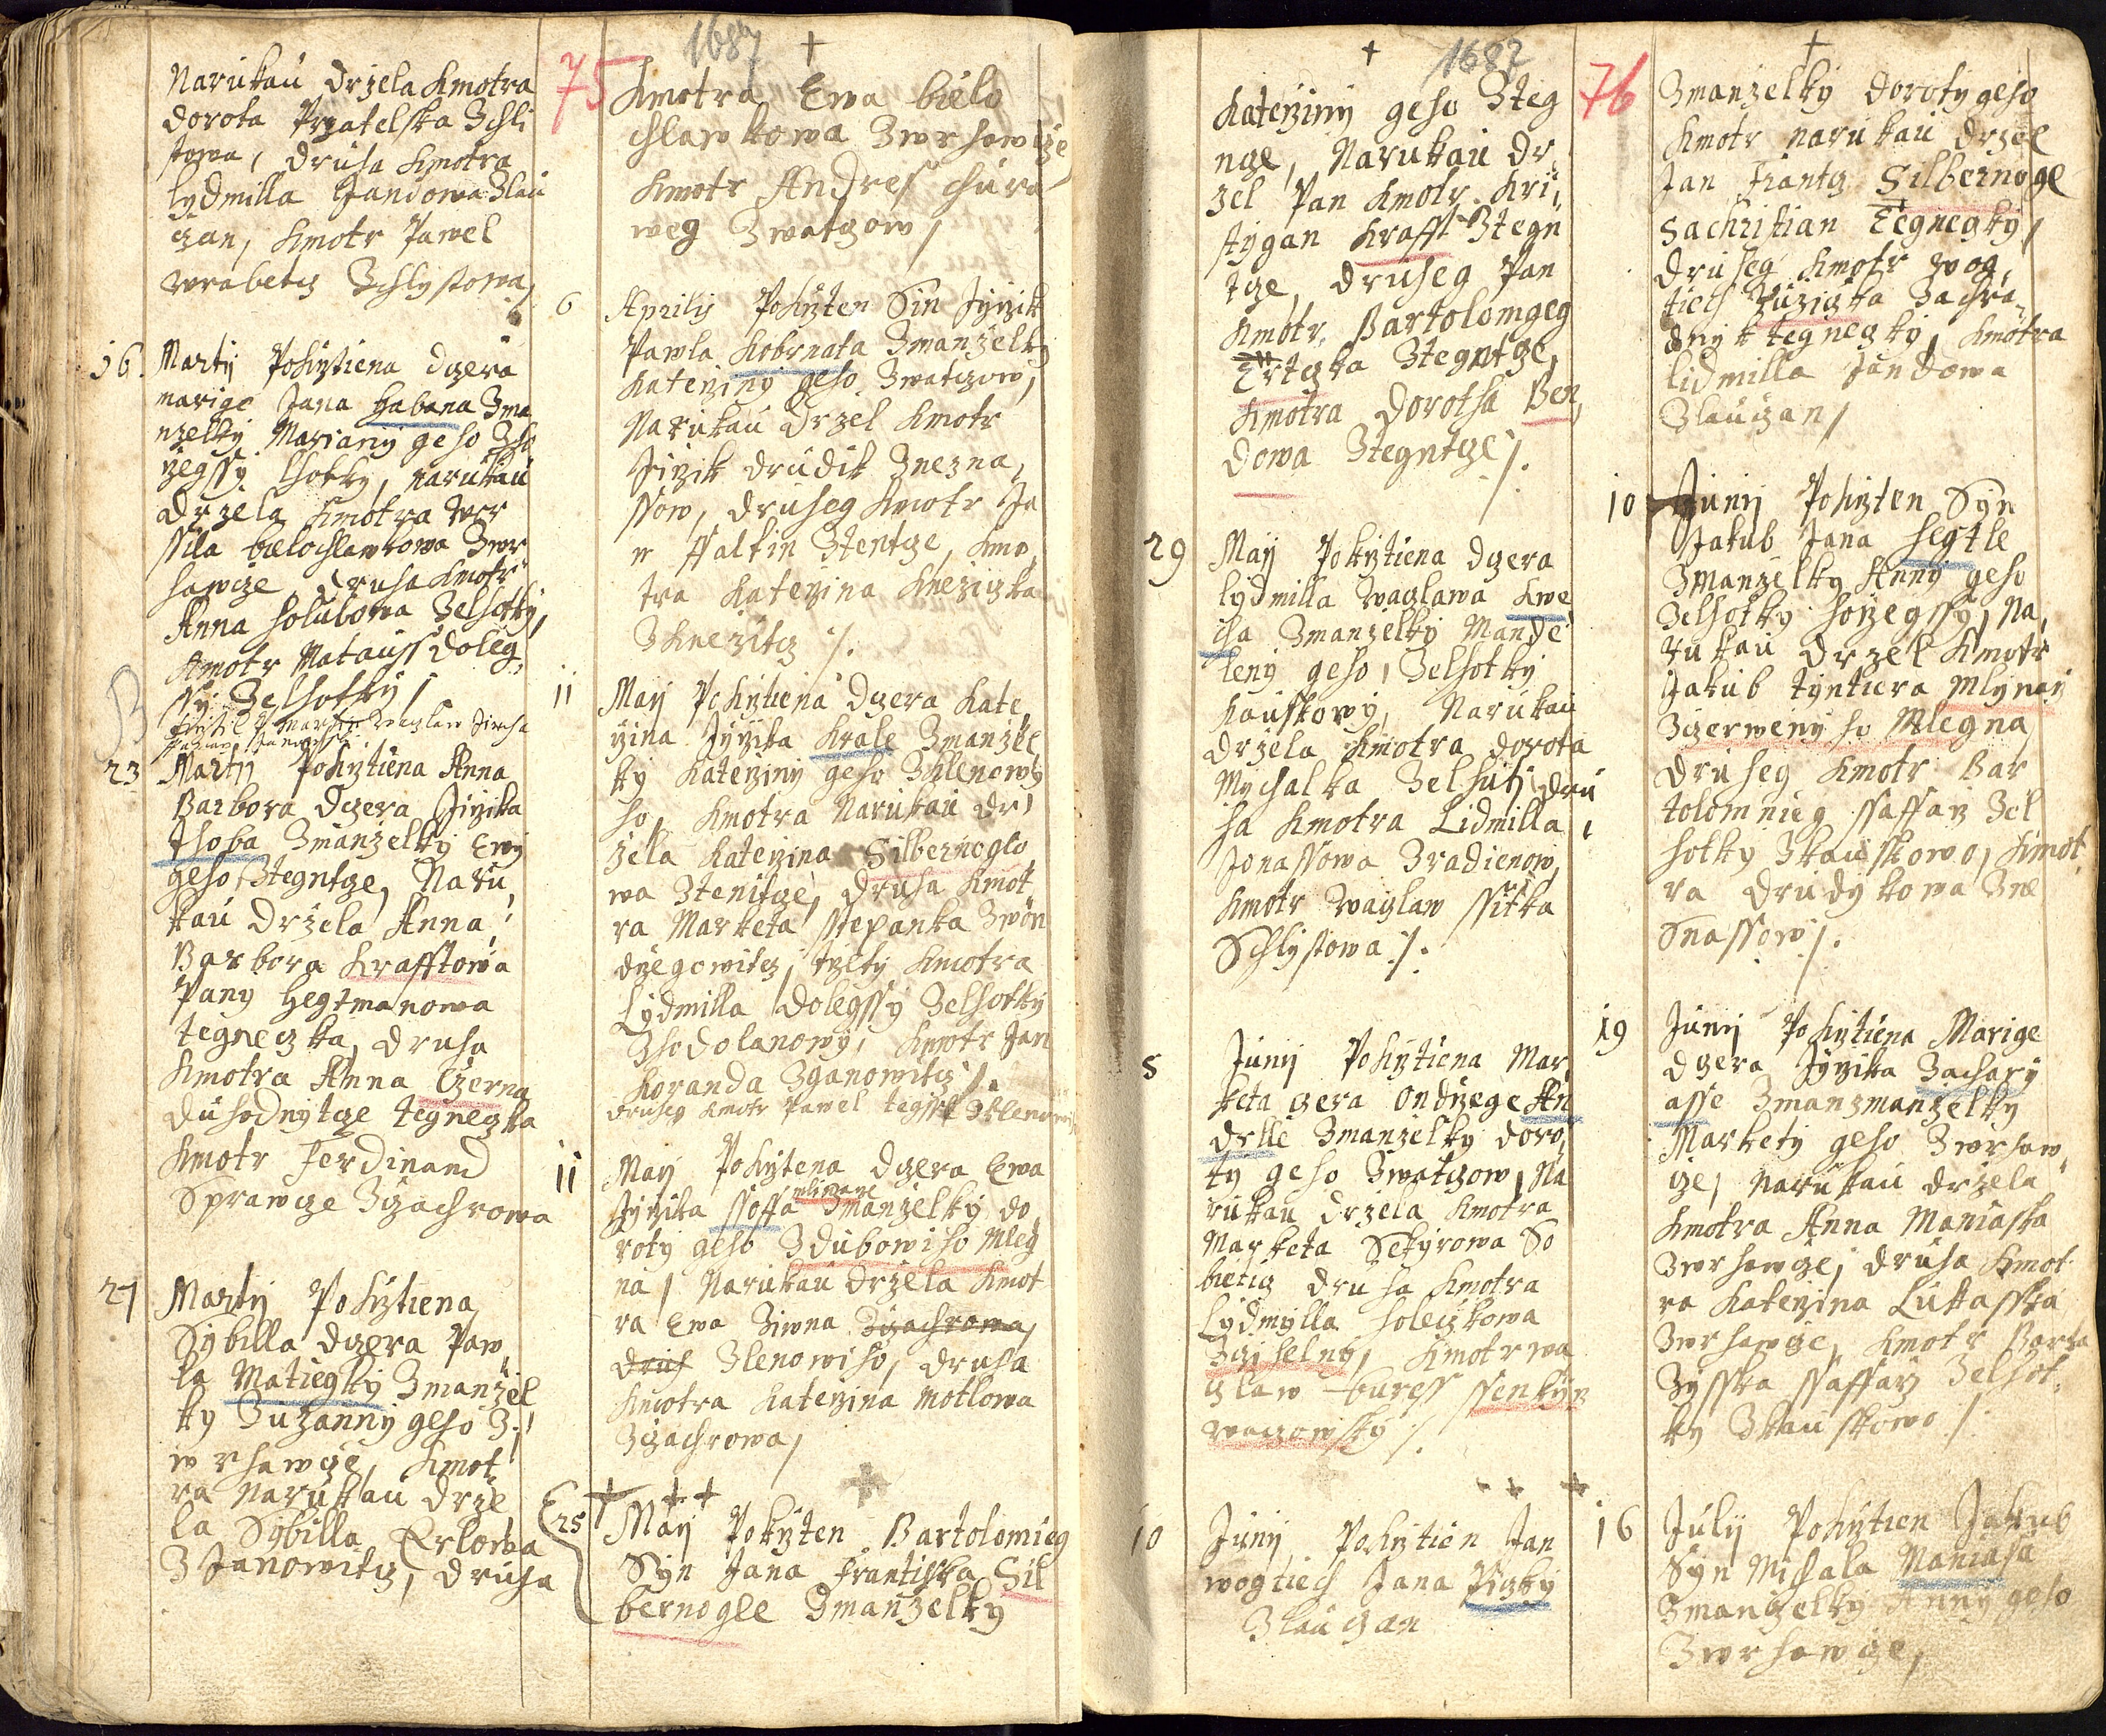 1687
75
Narukau drzela Kmotra
dorota Przatelska Zchli
stowa, druha Kmotra
lydmilla Jandowa Zlau
czan, Kmotr Pawel
wrabetz Zchlystowa,
16. Martij Pokrztiena dczera
marige Jana habana Zma
nzelky Mariany geho Zho
rzegssy lhotky, narukau
drzela Kmotra wor
ssila bielochlawkowa Zwr
hawcze druha Kmotr
Anna holubowa Zelhotky,
Kmotr Matauss doleg,
ssy Zelhotky,
23 Martij Pokrztiena Anna
Barbora dczera Jirzika
Zmanzelky Ewy
geho Ztegntze, Naru
kau drzela Anna
Barbora Krafftowa
Pany hegtmanowa
tegneczka, druha
Kmotra Anna Czerna
duhodnytze tegneczka
Kmotr Ferdinand
Sprawcze Zczachrowa
27 Martij Pokrztiena
Sybilla dczera Paw
la Matiegky Zmanzel
ky Zuzanny geho Z
wrhawcze, Kmot
ra Narukau drze
la Sybilla Erlowa
Z Janowitz, druha
Kmotra Ewa bielo
chlawkowa Zwrhawcze
Kmotr Andress chura
weg Zwatzow,
6 Aprilij Pokrzten Sin Jirzik
Pawla Kobrnata Zmanzelky
Katerziny geho Zwatczow,
Narukau drzel Kmotr
Jirzik drudik Znezna,
ssow, druheg Kmotr Ja
n ssalkin Ztentze, Kmo,
tra Katerzina Knezizka
Zknezitz /.
11 Maij Pokrztiena dczera Kate
rzina Jirzika Krale Zmanzel
ky Katerziny geho Zklenowy
ho, Kmotra Narukau dr
zela Katerzina Silbernoglo
wa Ztenitze, druha Kmot
ra Marketa sstepanka Zwon
drzegowitz, trzety Kmotra
Lydmilla dolegssy Zelhotky
Zhodolanowy, Kmotr Jan
Koranda Zganowitz /.
druheg Kmotr Pawel
11 Maij Pokrztena dczera Ewa
Jirzika ssaffa mlinarze Zmanzelky do
roty geho Zdubowiho Mleg
na, Narukau drzela Kmot
ra Ewa Ziwna Zczachrowa,
druh Zlenowiho, druha
Kmotra Katerzina Motlowa
Zczachrowa,
25 Maij Pokrzten Bartolomieg
Syn Jana Frantisska Sil
bernogle Zmanzelky
1687
76
Katerziny geho Zteg
ncze, Narukau dr
zel Pan Kmotr Kri,
stygan Krafft Ztegn
tze, druheg Pan
Kmotr, Bartolomgeg
Ertczka Ztegntze,
Kmotra Dorotha Ben,
dowa Ztegntze /.
29 Maij Pokrztiena dczera
lydmilla Waczlawa Kwe
cha Zmanzelky Mande
leny geho, Zelhotky
Kauskowy, Narukau
drzela Kmotra dorota
Mychalka Zelhuty dru
ha Kmotra Lidmilla,
Jonassowa Zradienow,
Kmotr Waczlaw ssitka
Schlystowa /.
5 Junij Pokrztiena Mar,
keta czera ondrzege An
drlle Zmanzelky doro,
ty geho Zwatczow, Na
rukau drzela Kmotra
Marketa Sekyrowa So
bietiz druha Kmotra
Lydmylla holeczkowa
Kmotr wa
czlaw buress ssenkyrz
10 Junij Pokrztien Jan
wogtiech Jana Piczky
Zlauczan
Zmanzelky doroty geho
Kmotr narukau drzel
Jan Frantz Silbernogl
Sachristian Tegneczky,
druheg Kmotr Wog,
tiech Ruziczka Zachra,
dnyk tegneczky, Kmotra
lidmilla Jandowa
Zlauczan,
10 Junij Pokrzten Syn
Jakub Jana hegtle
Zmanzelky Anny geho
Zelhotky horzegssy, Na,
rukau drzel Kmotr
Jakub tyntiera mlynarz
Zczerweny ho Mlegna
druheg Kmotr Bar
tolomieg ssaffarz Zel
hotky Zkauskowo, Kmot
ra drudykowa Zne
Snassow /.
19 Junij Pokrztiena Marige
dczera Jirzika Zachary
asse Zmanzmanzelky
Markety geho Zwrhaw,
cze, Narukau drzela
Kmotra Anna Maniaska
Zwrhawcze, druha Kmot
ra Katerzina Lukasska
Zwrhawcze, Kmotr Barta
Zysska ssaffarz Zelhot,
ky Zkauskowo /
16 Julij Pokrztien Jakub
Syn Michala Maniasa
Zmanzelky Anny geho
Zwrhawcze,